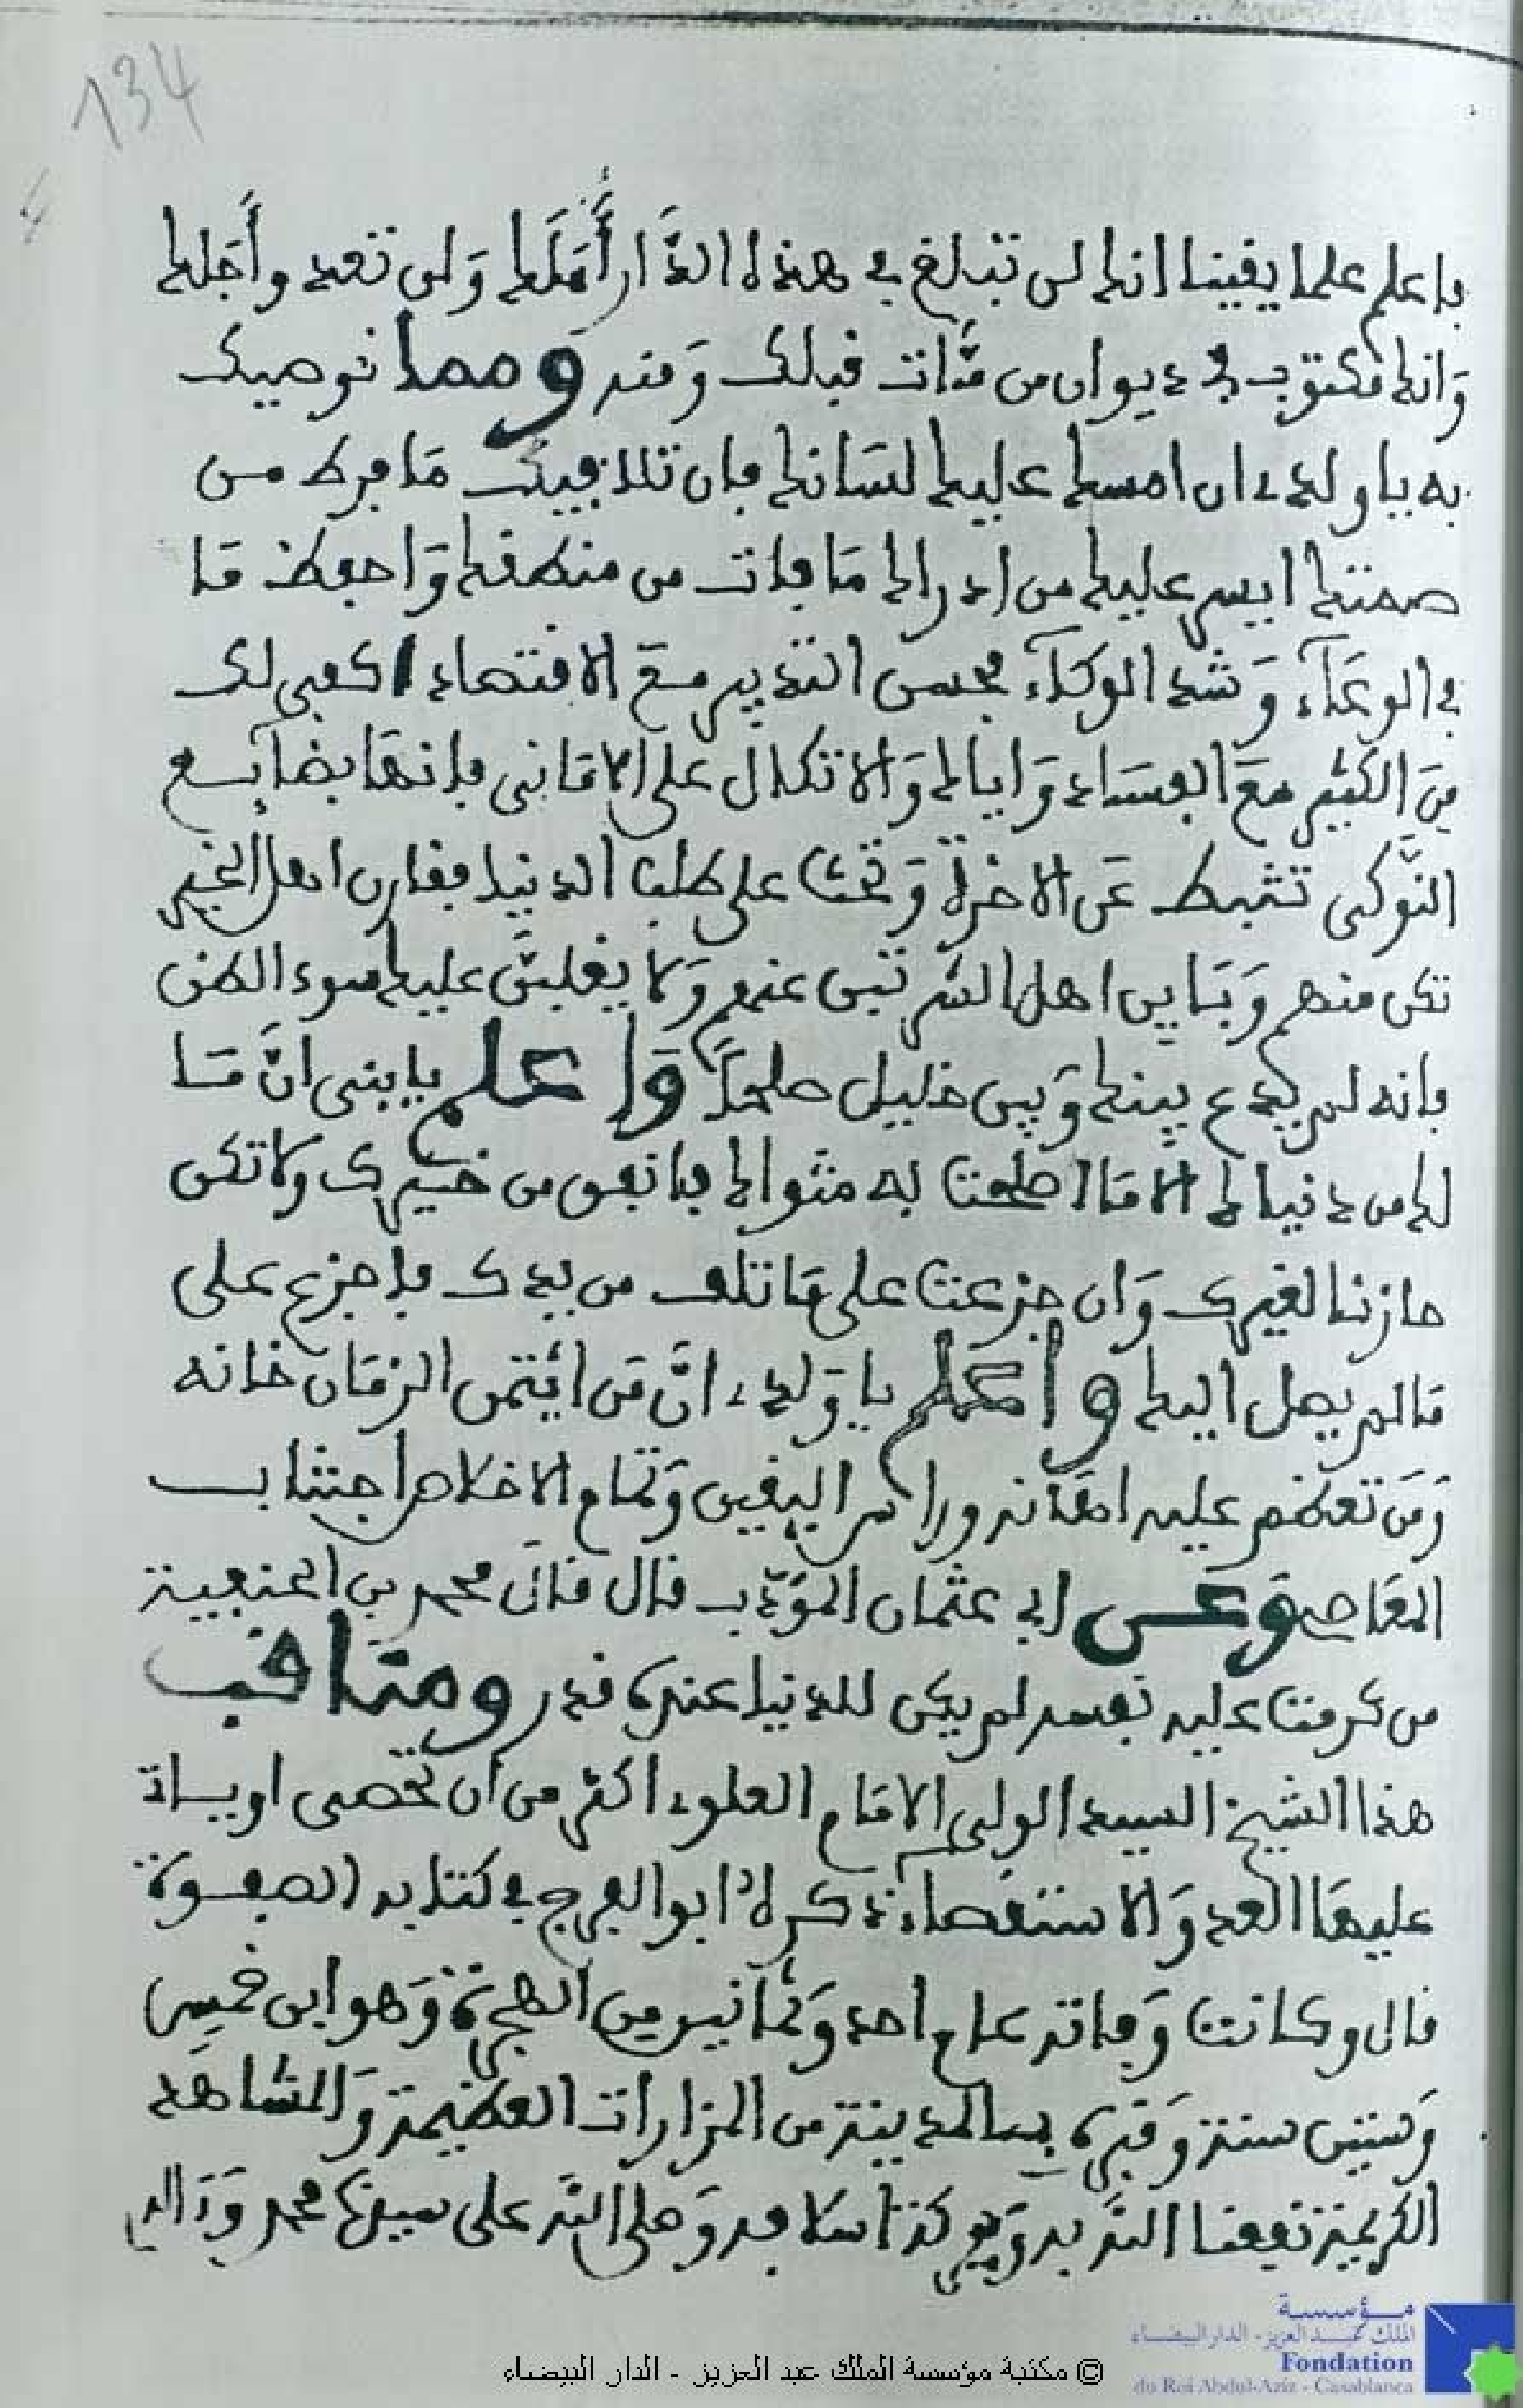 134
فاعلم علما يقينا انك لن تبلغ في هذه الدَّار أَمَلَك وَلن تعدو أَجَلك
وَانك مكتوب في ديوان من مَّات قبلك وَمنه ومما نوصيك
به يا ولدي ان امسك عليك لسَانك فان تلافيك مَا فرط من
صمتك ايسر عليك من ادراك مَا فات من منطقك وَاحفظ مَا
في الوعَآء وَشد الوكآء بحسن التدبير مع الاقتصاد اكفى لك
مِنَ الكثير معَ الفسَاد وَاياك وَالاتكال على الامَاني فإنهَا بضَآيع
النَّوكى تثبط عَن الاخرة وَتحث على طلب الدنيا فقارن اهل الخير
تكن منهم وَبَاين اهل الشر تبن عنهم وَلا يغلبنَّ عليك سوء الظن
فانه لم يدع بينك وَبين خليل صلحاً وَاعلم يا بني انَّ مَا
لك من دنياك الا مَا اصلحت به مثواك فانفق من خيرك ولا تكن
خازنا لغيرك وَان جزعت على مَا تلف من يدك فاجزع على
مَا لم يصل اليك واعلم يا وَلدي انَّ مَن ائتمن الزمَان خانه
وَمَن تعظم عليه اهَانه وراس اليقين وَتمام الاخلاص اجتناب
المعَاصي وعن ابي عثمان المؤدّب قال قال محمد بن الحنفية
من كرمت عليه نفسه لم يكن للدنيا عنده قدر ومناقب
هذا الشيخ السيد الولي الامَام العلوي اكثر من ان تحصى او ياتي
عليهَا العد وَالاستقصاء ذكره ابو الفرج في كتابه الصفوة
قال وكانت وَفاته عام احد وَثمانين من الهجرة وَهو ابن خمس
وَستين سنة وَقبره بالمدينة من المزارات العظيمة وَالمشاهد
الكريمة نفعنا اللَّه به وَبذكر اسلافه وَصلى اللَّه على سيدنا محمد وَءَاله
© مكتبة مؤسسة الملك عبد العزيز - الدار البيضاء
مؤسسة
الملك عبد العزيز - الدار البيضاء
Fondation
du Roi Abdul-Aziz - Casablanca